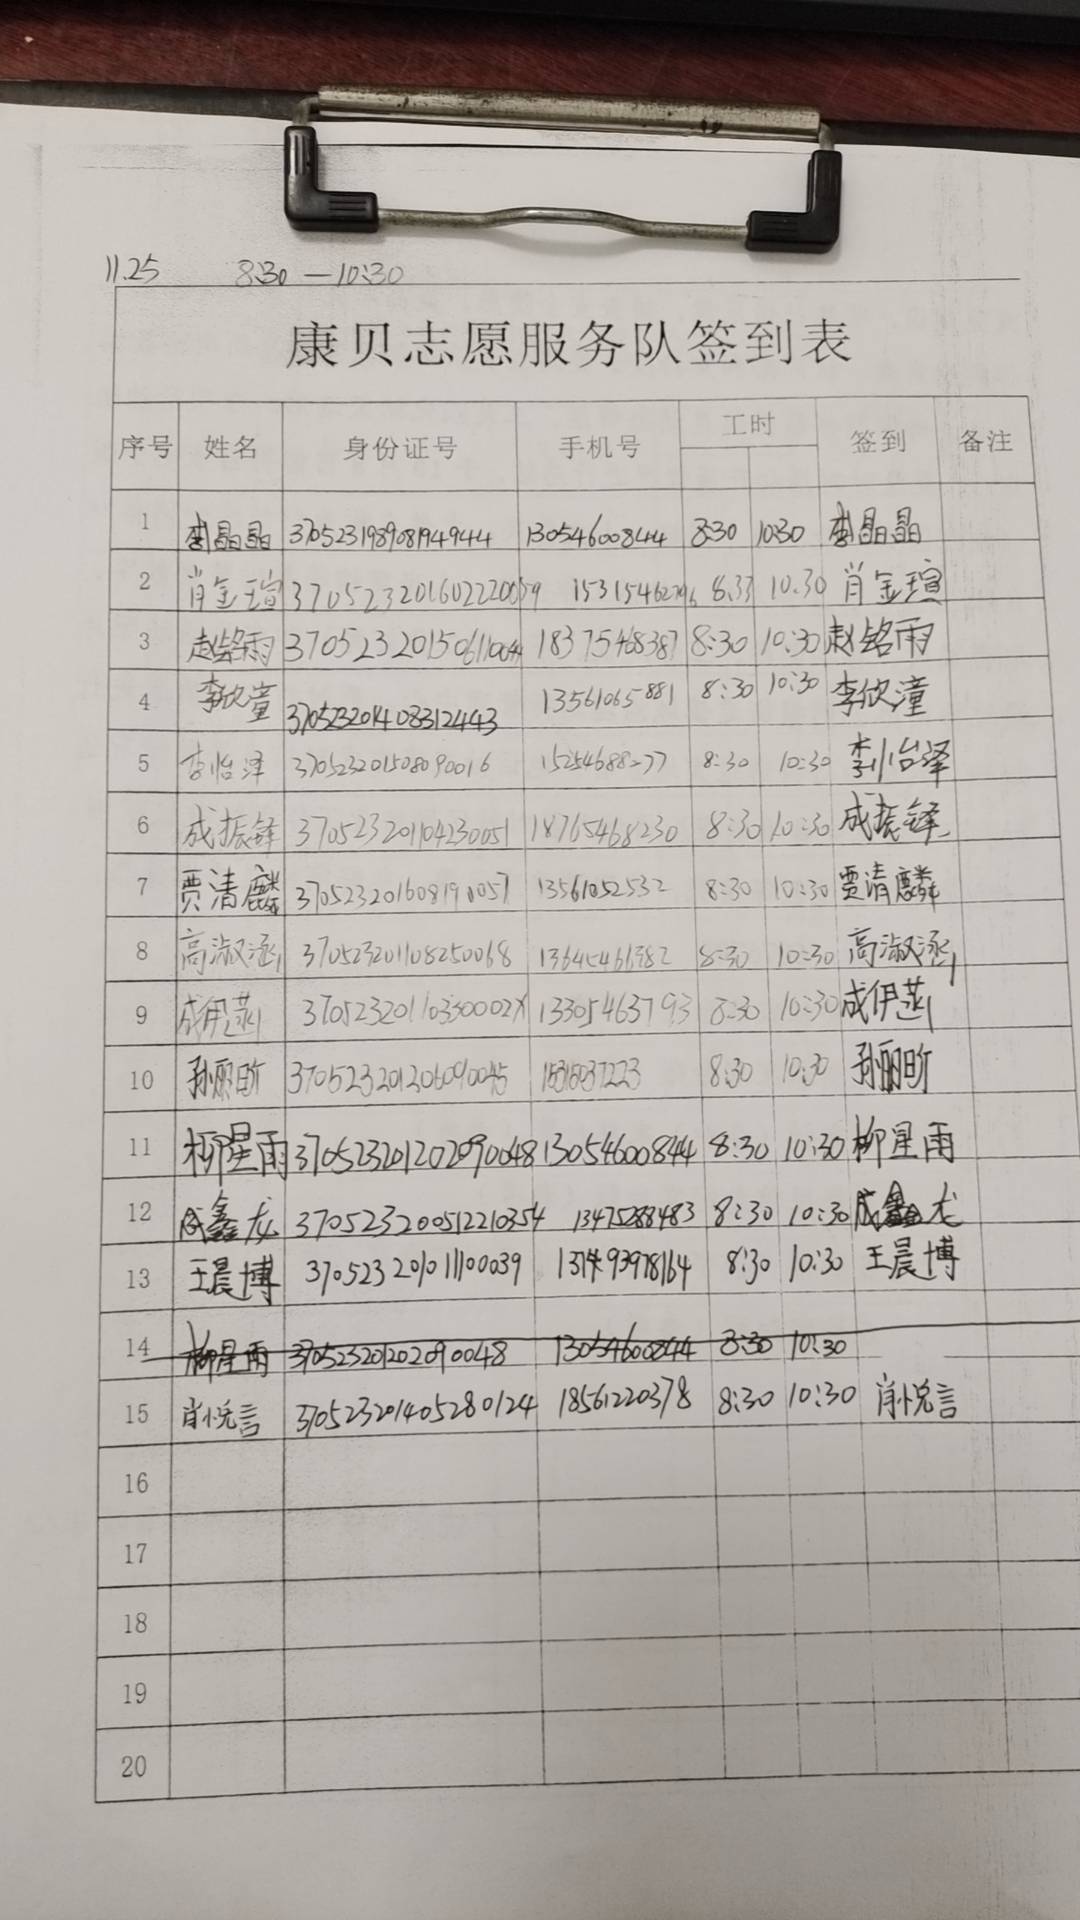 11.25 8:30—10:30
康贝志愿服务队签到表
序号 姓名 身份证号 手机号 工时 签到 备注
1 李晶晶 370523198908194944 13054600844 8:30 10:30 李晶晶
2 肖金瑄 370523201602220059 8:33 10:30 肖金瑄
3 赵铭雨 18375468387 8:30 10:30 赵铭雨
4 李欣潼 370523201408312443 13561065881 8:30 10:30 李欣潼
5 李怡泽 370523201508090016 8:30 10:30 李怡泽
6 成振锋 370523201104230051 18765468230 8:30 10:30 成振锋
7 贾清麟 370523201608190057 13561052532 8:30 10:30 贾清麟
8 高淑涵 370523201108250068 8:30 10:30 高淑涵
9 成伊菡 13305463793 8:30 10:30 成伊菡
10 孙丽昕 370523201206090045 8:30 10:30 孙丽昕
11 柳星雨 370523201202090048 13054600844 8:30 10:30 柳星雨
12 成鑫龙 370523200512210354 13475288483 8:30 10:30 成鑫龙
13 王晨博 370523201011100039 8:30 10:30 王晨博
14 柳星雨 370523201202090048 13054600844 8:30 10:30
15 肖悦言 370523201405280124 18561220378 8:30 10:30 肖悦言
16
17
18
19
20